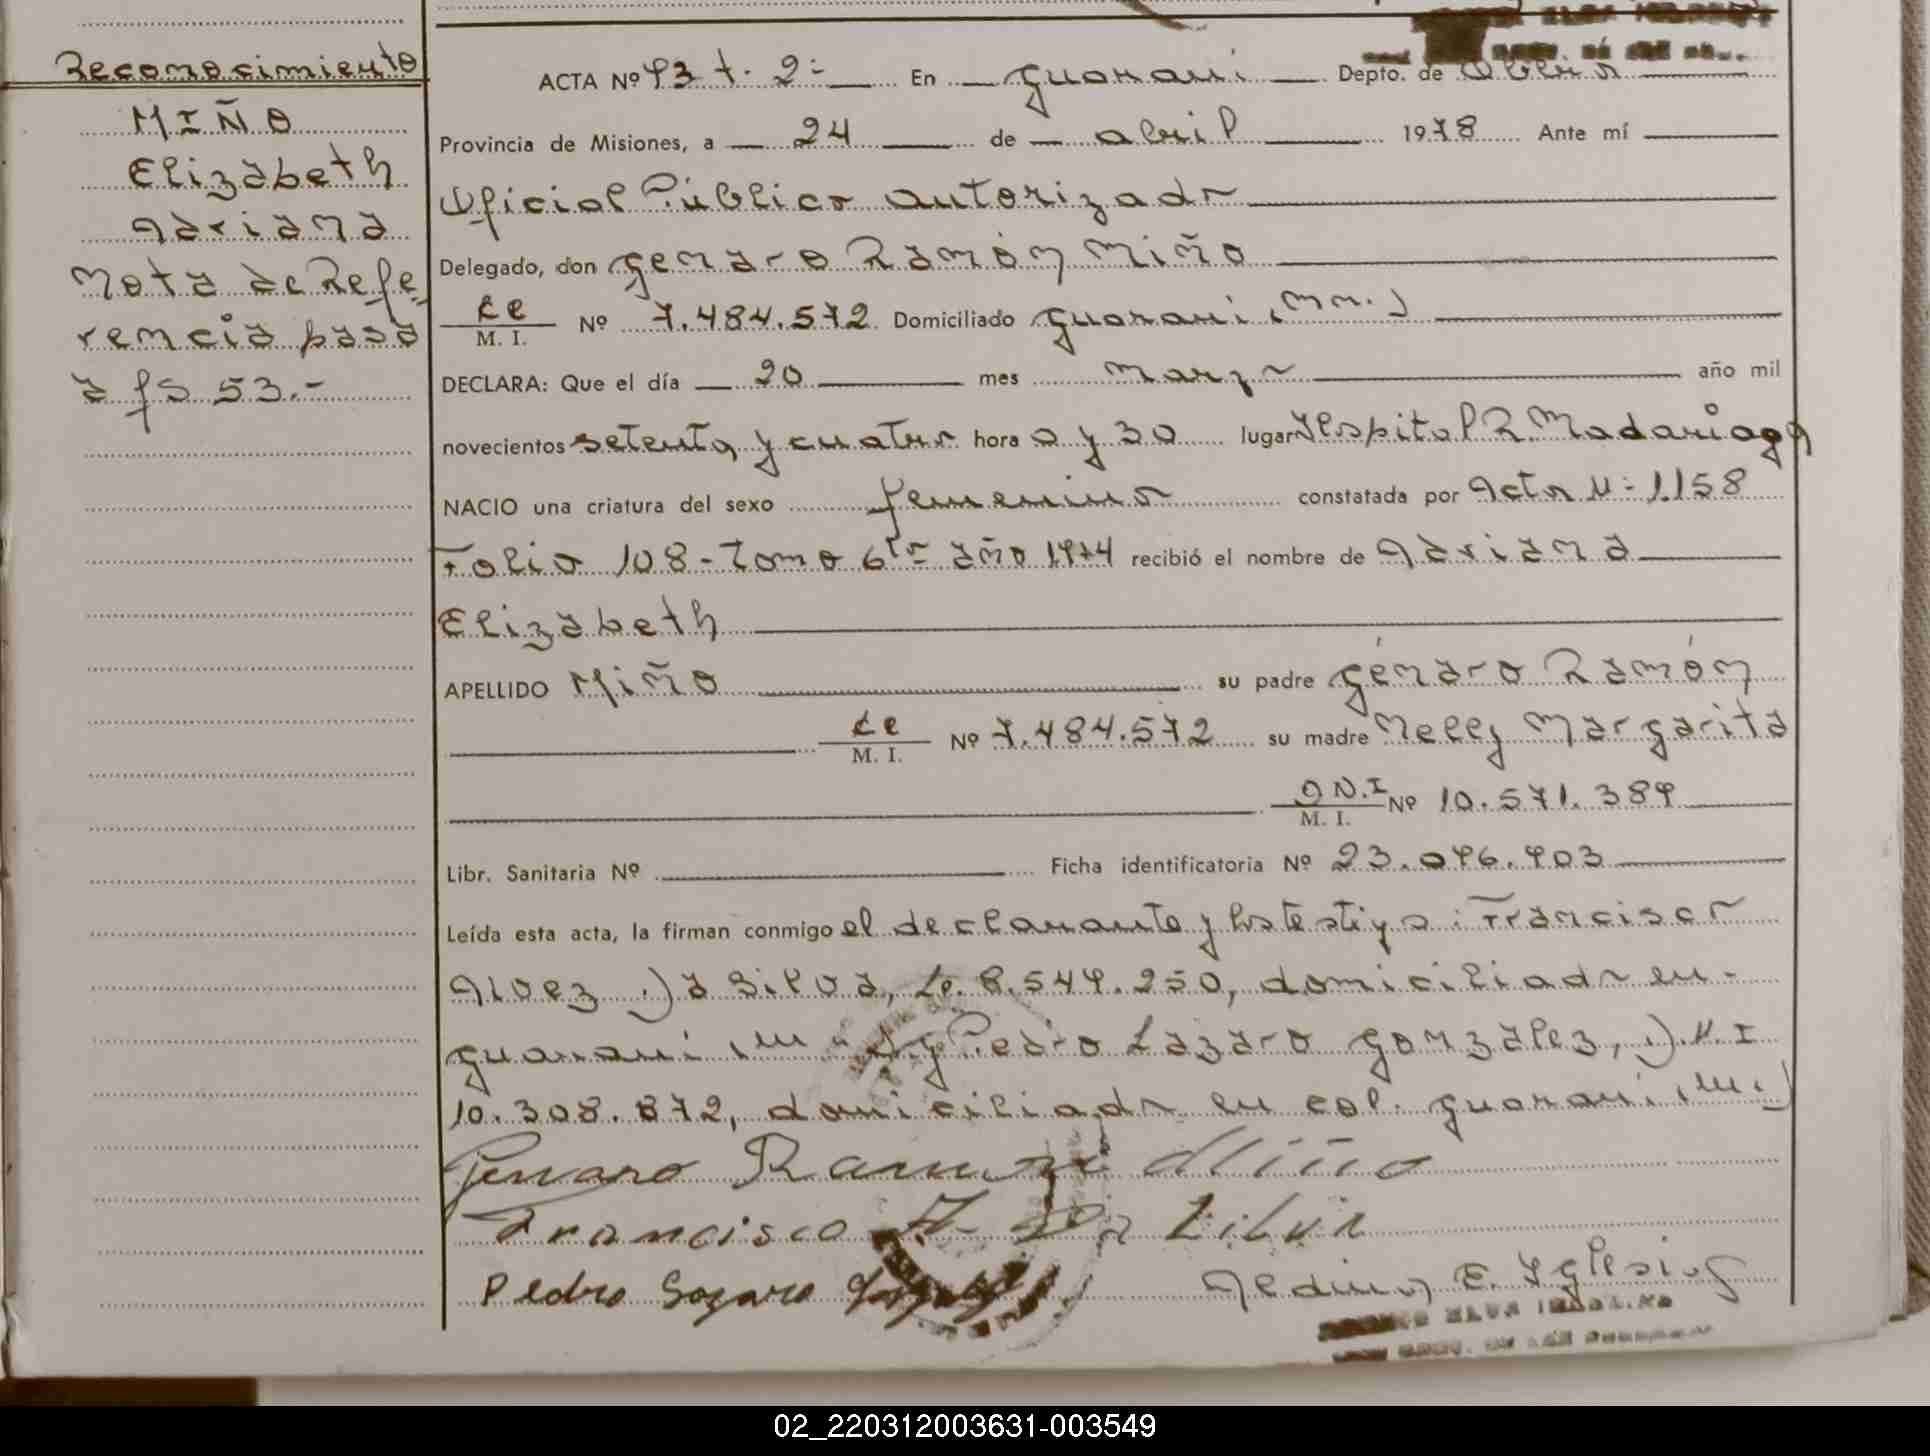 Reconocimiento
MIÑO
Elizabeth
Adriana
Nota de Refe-
rencia pasa
a fs 53.-
ACTA Nº 93 t. 2º En Guarani Depto. de Obera
Provincia de Misiones, a 24 de abril 1978 Ante mí
Oficial Público autorizado
Delegado, don Genaro Ramón Miño
LE
M. I. Nº 7.484.572 Domiciliado Guarani, (Mns.)
DECLARA: Que el día 20 mes Marzo año mil
novecientos setenta y cuatro hora 0 y 30 lugar Hospital R. Madariaga
NACIO una criatura del sexo femenino constatada por Acta Nº 1.158
Folio 108 - Tomo 6to año 1974 recibió el nombre de Adriana
Elizabeth
APELLIDO Miño su padre Génaro Ramón
LE
M. I. Nº 7.484.572 su madre Nelly Margarita
D N.I
M. I. Nº 10.571.389
Libr. Sanitaria Nº Ficha identificatoria Nº 23.096.903
Leída esta acta, la firman conmigo el declarante y los testigos: Francisco
Alvez Da Silva, Le. 8.549.250, domiciliado en
Guarani y Pedro Lázaro González, D.N.I
10.308.872, domiciliado en Col. Guarani
Genaro Ramon Miño
Francisco A. Da Silva
Pedro Lazaro
E. Iglesias
02_220312003631-003549